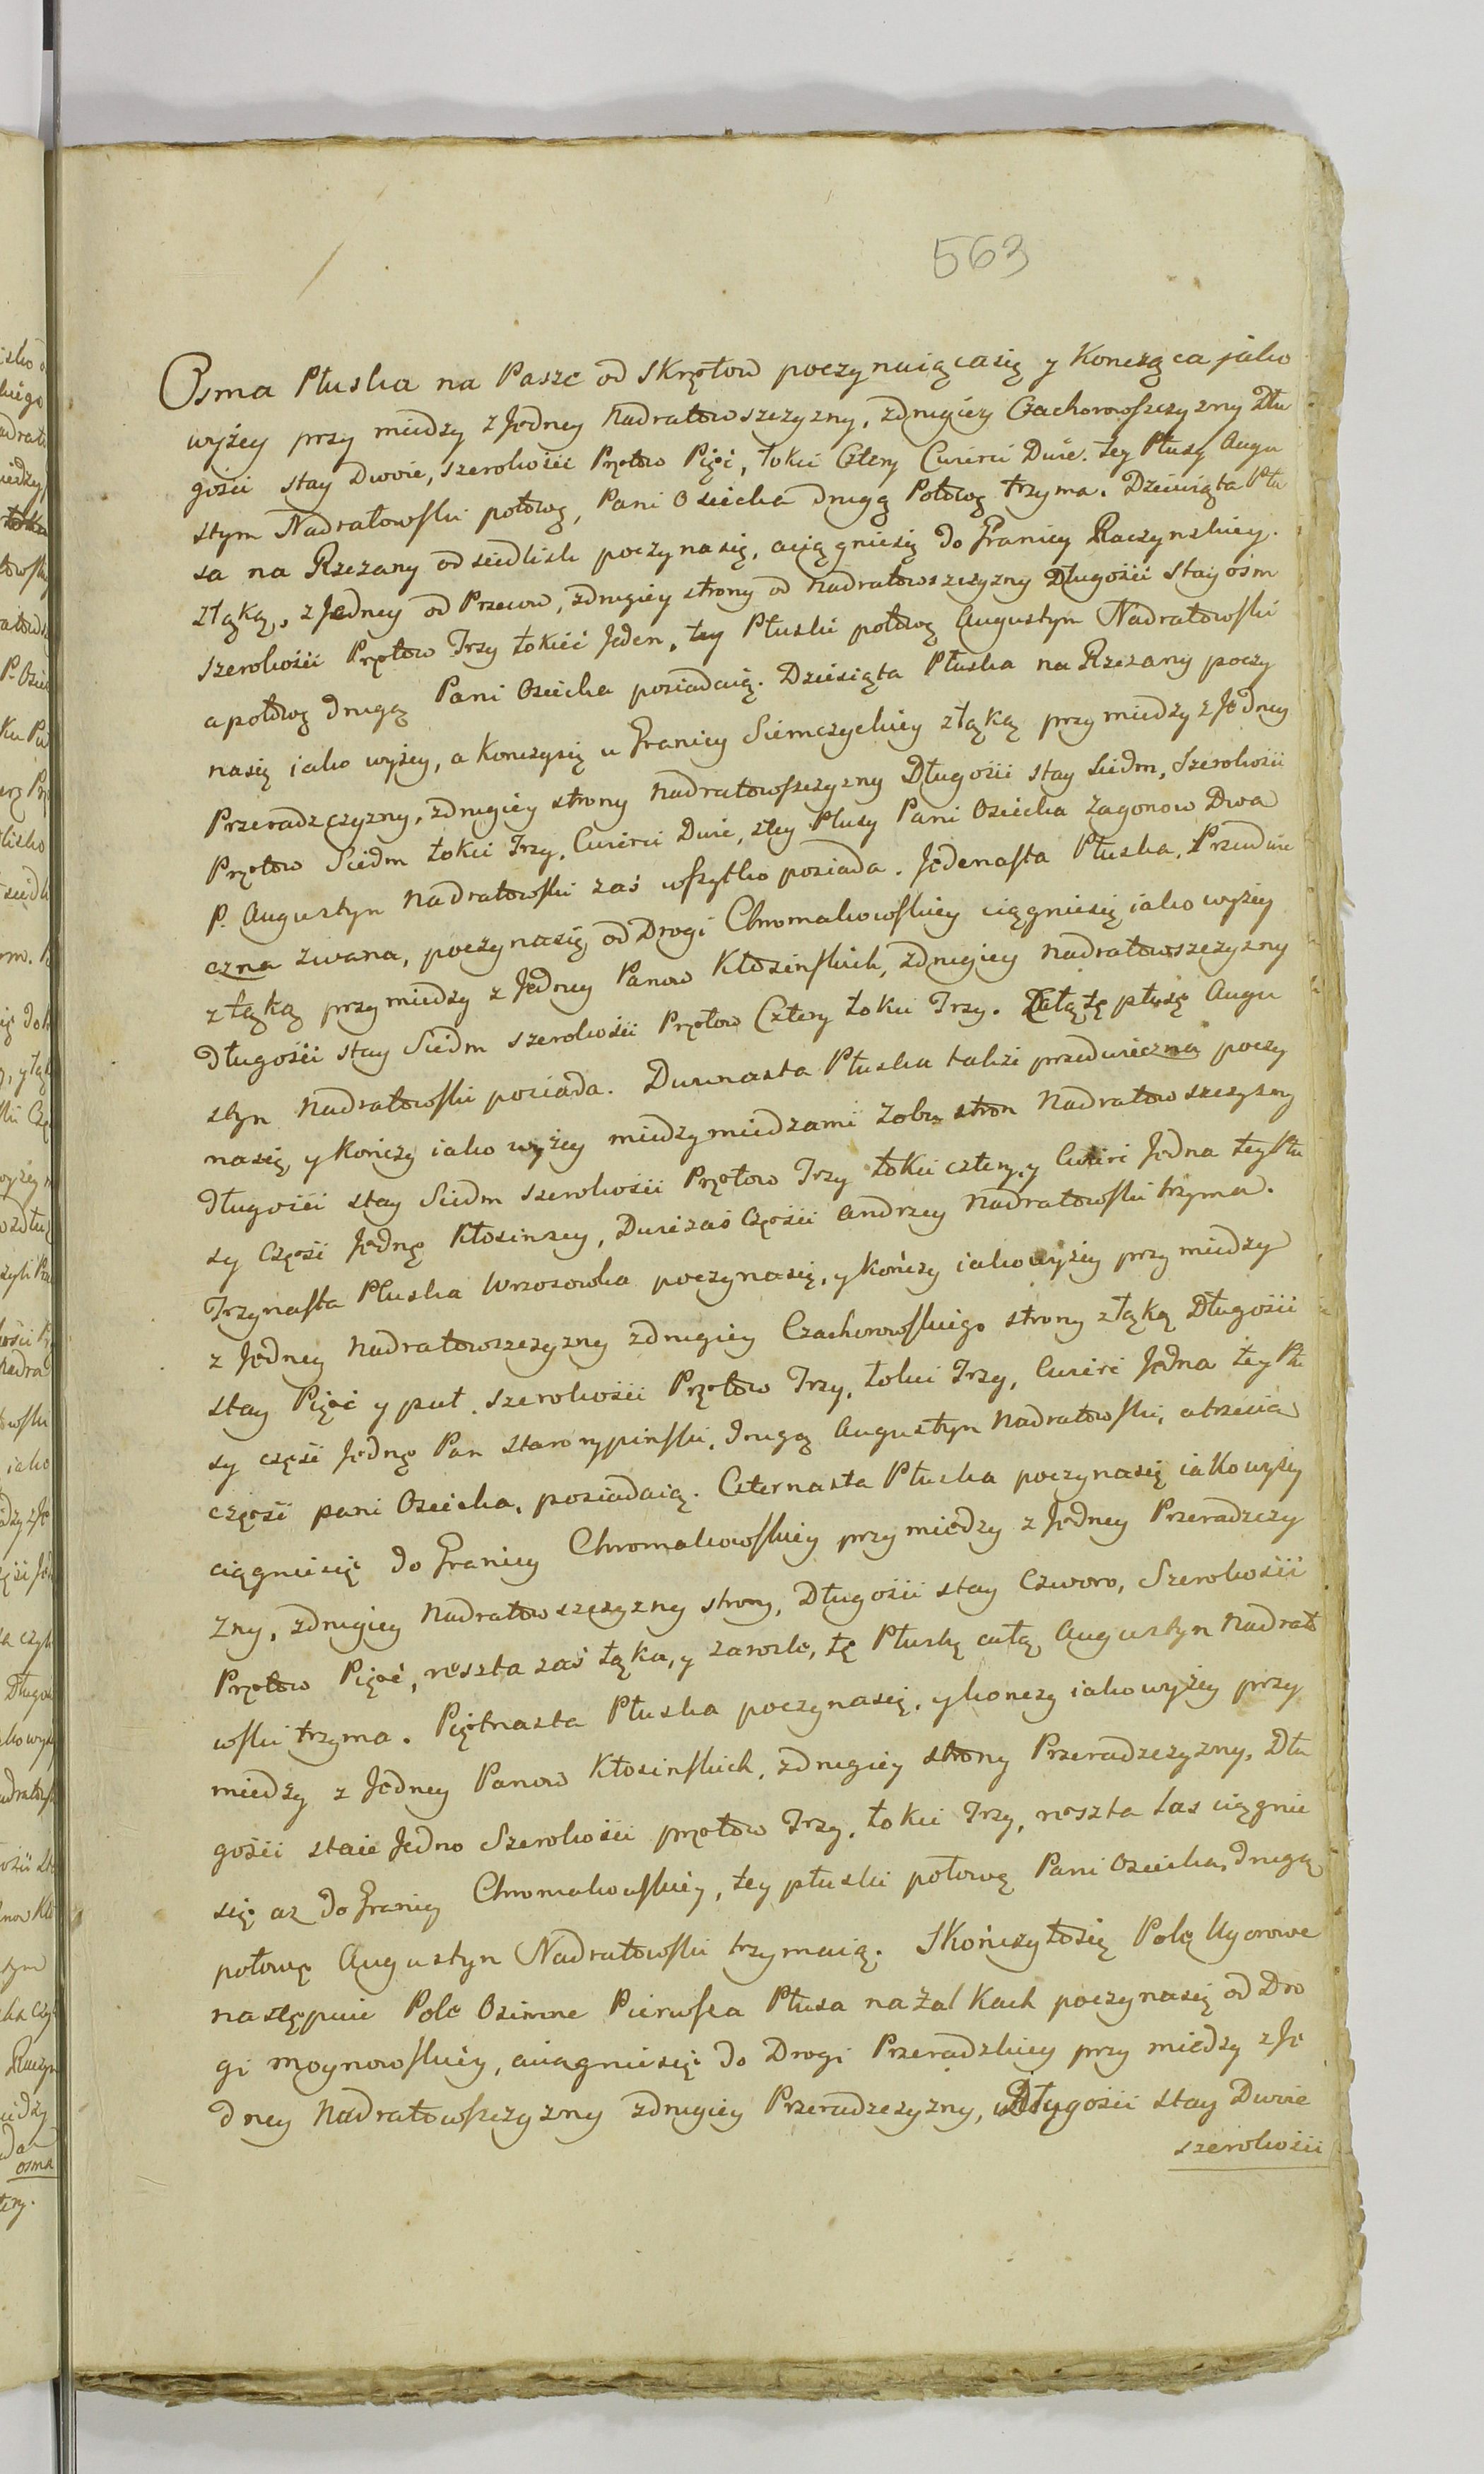 563
Osma Płuska na Pasze od Skrętow poczynaiącasię y Konczącą jako
wyżey przy miedzy z Jedney Nadratowszczyzny, zdrugiey Czachorowszczyzny Dłu
gości stay Dwoie, szerokości Prętow Pięć, łokci Cztery Cwierci Dwie. tey Płusy Augu
stym Nadratowski połowę, Pani Osiecka drugą Połowę trzyma. Dziewiąta Płu
sa na Rzezany odsiedlisk poczynasię, aciągniesię do Granicy Raczynskiey.
złąką, z Jedney od Przecow, zdrugiey strony od Nadratowszczyzny Długości Stay ośm
szerokości Prętow Trzy łokieć Jeden, tey Płuski połowę Augustyn Nadratowski
apołowę drugą Pani Osiecka posiadaią. Dziesiąta Płuska na Rzezany poczy
nasię iako wyżey, a Konczysię u Granicy Siemczyckiey złąką przy miedzy z Jedney
Przeradzczyzny, zdrugiey strony Nadratowszczyzny Długości stay Siedm, Szerokości
Prętow Siedm łokci Trzy, Cwierci Dwie, ztey Płusy Pani Osiecka Zagonow Dwa
P. Augustyn Nadratowski zaś wszytko posiada. Jedenasta Płuska, Przedwie
czna zwana, poczynasię od Drogi Chromakowskiey ciągniesię iako wyżey
z łąką przy miedzy z Jedney Panow Kłosinskich, zdrugiey Nadratowszczyzny
Długości stay Siedm szerokości Prętow Cztery łokci Trzy. Całą tę płusę Augu
styn Nadratowski posiada. Dwunasta Płuska także przedwieczna poczy
nasię, y Kończy iako wyżey miedzy miedzami Zobu stron Nadratowszczyzny
Długości stay Siedm szerokości Prętow Trzy łokci cztery y Cwierć Jedna tey Płu
sy Część Jednę Kłosinscy, Dwie zaś Części Andrzey Nadratowski trzyma.
Trzynasta Płuska Wrzosowka poczynasię, y kończy iako wyżey przy miedzy
z Jedney Nadratowszczyzny zdrugiey Czachorowskiego strony złąką Długości
stay Pięć y puł. szerokości Prętow Trzy, łokci Trzy, Cwierć Jedna tey Płu
sy część Jednę Pan Starorypinski, drugą Augustyn Nadratowski, atrzecią
część pani Osiecka, posiadaią. Czternasta Płuska poczynasię iako wyży
ciągniesię do Granicy Chromakowskiey przy miedzy z Jedney Przeradzczy
zny, zdrugiey Nadratowszczyzny strony, Długości stay Czworo, Szerokości
Prętow Pięć, reszta zaś łąka, y zarosle, tę Płuskę całą Augustyn Nadrato
wski trzyma. Piętnasta Płuska poczynasię, y konczy iako wyżey przy
miedzy z Jedney Panow Kłosinskich, zdrugiey strony Przeradzczyzny, Dłu
gości staie Jedno Szerokości prętow Trzy, łokci Trzy, reszta las ciągnie
się az do Granicy Chromakowskiey, tey płuski połowę Pani Osiecka, drugą
połowę Augustyn Nadratowski trzymaią. Skończyłosię Pole Ugorowe
następuie Pole Osimne Pierwsza Płusa na Żalkach poczynasię od Dro
gi Moynowskiey, aciągniesię do Drogi Przeradzkiey przy miedzy z Je
dney Nadratowszczyzny zdrugiey Przeradzczyzny, Długości stay Dwoie
szerokości